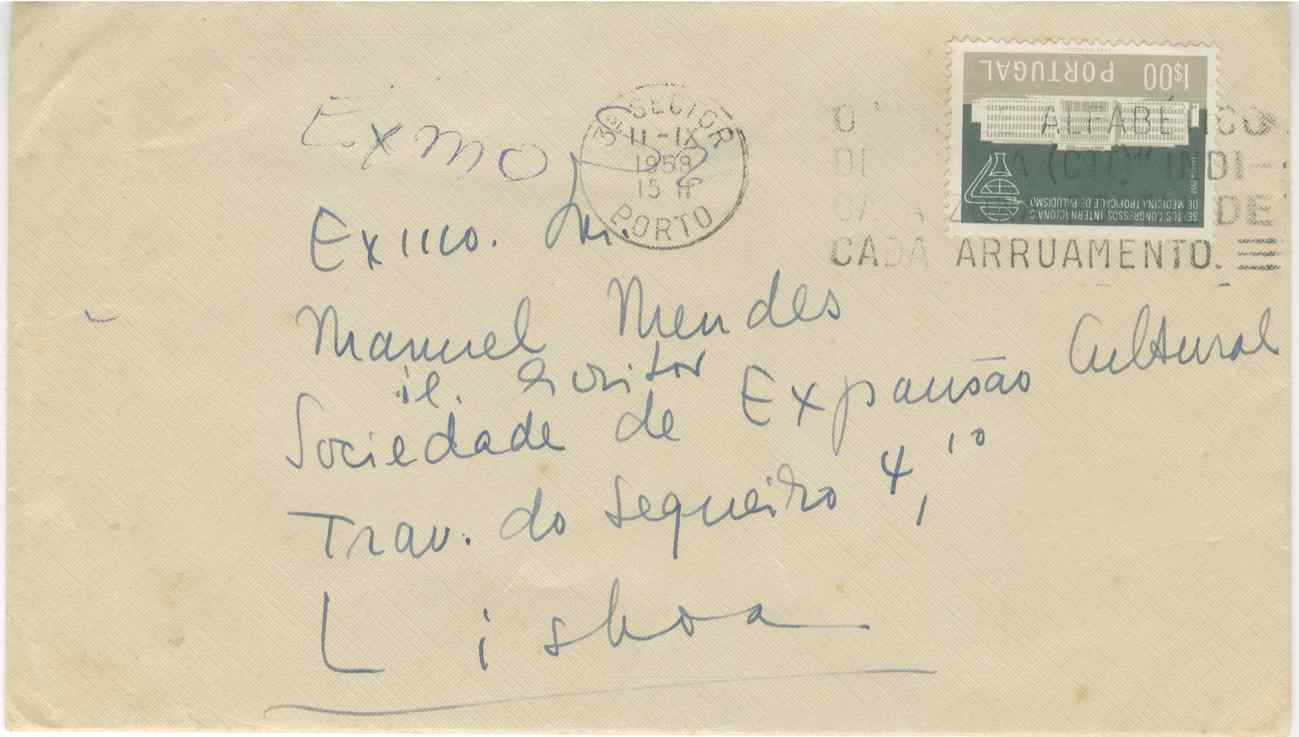 Exmo
3º SECTOR
11-IX
1958
15 H
PORTO
1$00 PORTUGAL
SEXTOS CONGRESSOS INTERNACIONAIS
DE MEDICINA TROPICAL E DE PALUDISMO
O ALFABÉTICO
INDI-
DE
CADA ARRUAMENTO.
Exmo. Sr.
Manuel Mendes
il. Escritor
Sociedade de Expansão Cultural
Trav. do Sequeiro 4, 1º
Lisboa